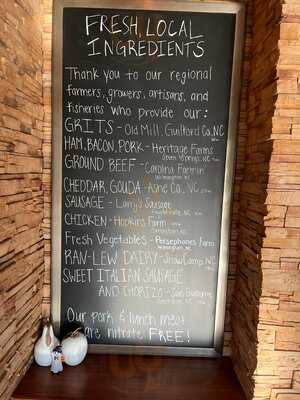 FRESH, LOCAL
INGREDIENTS
Thank you to our regional
farmers, growers, artisans, and
fisheries who provide our:
GRITS - Old Mill, Guilford Co, NC
HAM, BACON, PORK - Heritage Farms
NC
GROUND BEEF - Carolina
NC
CHEDDAR, GOUDA - Ashe Co., NC
SAUSAGE - Larry's Sausage
NC
CHICKEN - Hopkins Farm
NC
Fresh Vegetables - Persephones Farm
NC
RAN-LEW DAIRY - Snow Camp, NC
SWEET ITALIAN SAUSAGE
AND CHORIZO - San Giuseppe
NC
Our pork & lunch meat
are nitrate FREE!